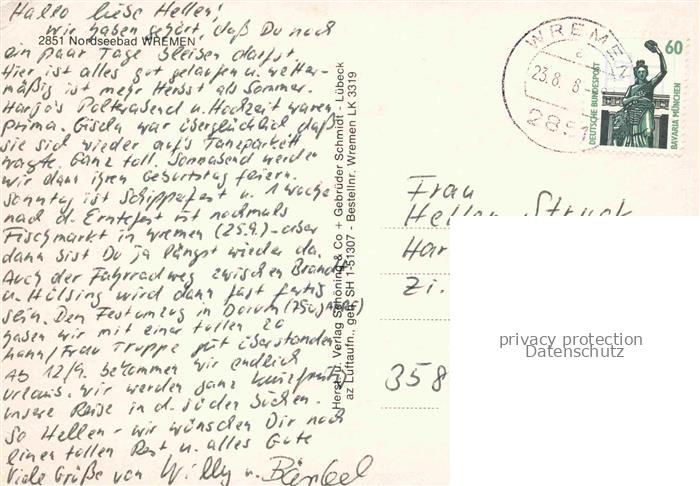 Hallo liebe Hellen!
Wir haben gehört, daß Du noch
2851 Nordseebad WREMEN
ein paar Tage bleiben darfst.
Hier ist alles gut gelaufen u. wetter-
mäßig ist mehr Herbst als Sommer.
Harjo's Polterabend u. Hochzeit waren
prima. Gisela war überglücklich daß
sie sich wieder auf's Tanzparkett
wagte. Ganz toll. Sonnabend werden
wir dann ihren Geburtstag feiern.
Sonntag ist Schipperfest u. 1 Woche
nach d. Erntefest ist nochmals
Fischmarkt in Wremen (25.9.) - aber
dann bist Du ja längst wieder da.
Auch der Fahrradweg zwischen
u. Hülsing wird dann fast fertig
sein. Den Festumzug in Dorum (750 Jahre)
haben wir mit einer tollen 20
Mann/Frau Truppe gut überstanden
Ab 12/9. bekommen wir endlich
Urlaub. Wir werden ganz kurzfristig
unsere Reise in d. Süden buchen.
So Hellen - wir wünschen Dir noch
einen tollen Rest u. alles Gute
Viele Grüße von Willy u. Bärbel
Herst. u. Verlag Schöning & Co + Gebrüder Schmidt - Lübeck
az Luftaufn., gen. SH 1-51307 - Bestellnr. Wremen LK 3319
WREMEN
a
23.8. 8-
2851
60
DEUTSCHE BUNDESPOST
BAVARIA MÜNCHEN
Frau
Hellen Struck
Har
Zi.
358
privacy protection
Datenschutz